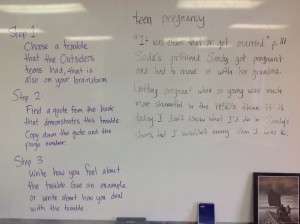 Step 1
Choose a trouble
that the Outsiders
teens had, that is
also on your brainstorm.
Step 2
Find a quote from the book
that demonstrates this trouble
Copy down the quote and the
page number.
Step 3
Write how you feel about
the trouble. Give an example
or write about how you deal
with the trouble.
teen pregnancy
"It was either that or get married" p. 111
Soda's girlfriend Sandy got pregnant
and had to move in with her grandma.
Getting pregnant when so young was much
more shameful in the 1960s than it is
today. I don't know what I'd do in Sandy's
shoes, but I wouldn't marry when I was 16.